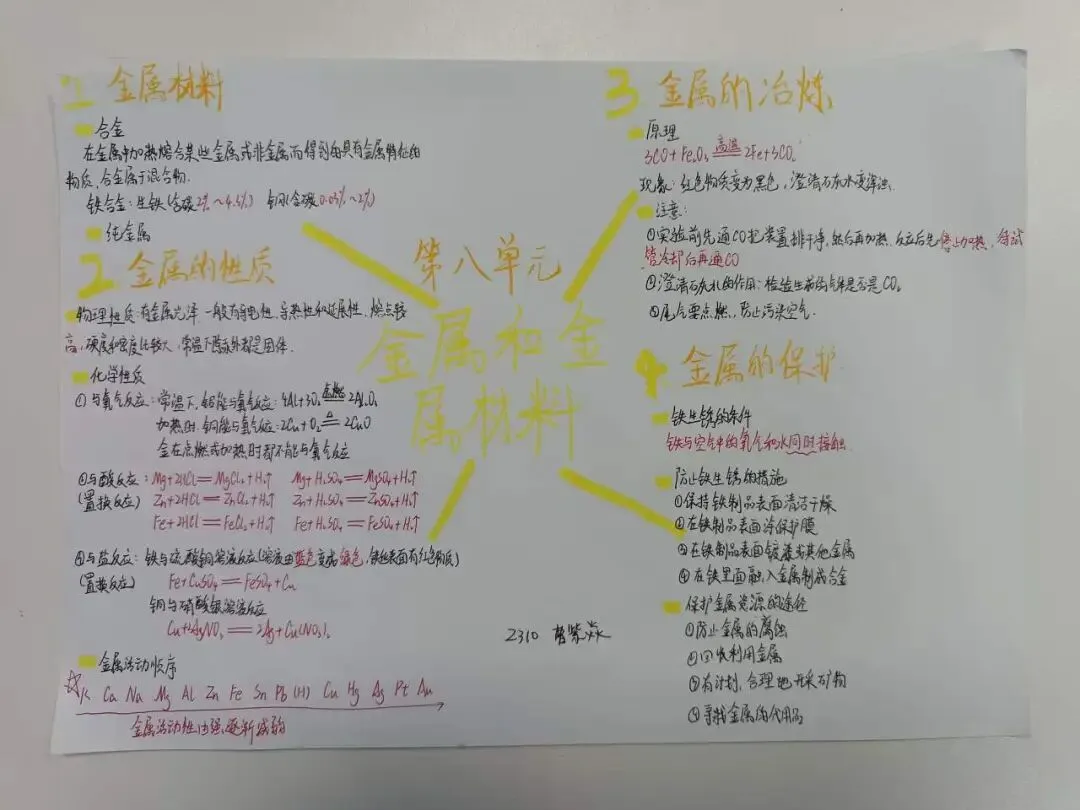 第八单元
金属和金
属材料
1 金属材料
合金
在金属中加热熔合某些金属或非金属而得到的具有金属特征的
物质,合金属于混合物.
铁合金:生铁(含碳2%~4.3%) 钢(含碳0.03%~2%)
纯金属
2. 金属的性质
物理性质:有金属光泽,一般有导电性、导热性和延展性,熔点较
高,硬度和密度比较大,常温下除汞外都是固体.
化学性质
①与氧气反应:常温下,铝能与氧气反应:4Al+3O₂═2Al₂O₃
加热时,铜能与氧气反应:2Cu+O₂ △═ 2CuO
金在点燃或加热时都不能与氧气反应
②与酸反应:Mg+2HCl═MgCl₂+H₂↑ Mg+H₂SO₄═MgSO₄+H₂↑
(置换反应) Zn+2HCl═ZnCl₂+H₂↑ Zn+H₂SO₄═ZnSO₄+H₂↑
Fe+2HCl═FeCl₂+H₂↑ Fe+H₂SO₄═FeSO₄+H₂↑
③与盐反应:铁与硫酸铜溶液反应(溶液由蓝色变成绿色,铁钉表面有红色物质)
(置换反应) Fe+CuSO₄═FeSO₄+Cu
铜与硝酸银溶液反应
Cu+2AgNO₃═2Ag+Cu(NO₃)₂
金属活动顺序
K Ca Na Mg Al Zn Fe Sn Pb (H) Cu Hg Ag Pt Au
金属活动性由强逐渐减弱
3 金属的冶炼
原理
3CO+Fe₂O₃ 高温═ 2Fe+3CO₂
现象:红色物质变为黑色,澄清石灰水变浑浊.
注意:
①实验前先通CO把装置排干净,然后再加热.反应后先停止加热,待试
管冷却后再通CO
②澄清石灰水的作用:检验生成的气体是否是CO₂
③尾气要点燃,防止污染空气.
4. 金属的保护
铁生锈的条件
铁与空气中的氧气和水同时接触.
防止铁生锈的措施
①保持铁制品表面清洁干燥
②在铁制品表面涂保护膜
③在铁制品表面镀漆或其他金属
④在铁里面融入金属制成合金
保护金属资源的途径
①防止金属的腐蚀
②回收利用金属
③有计划,合理地开采矿物
④寻找金属的代用品
2310